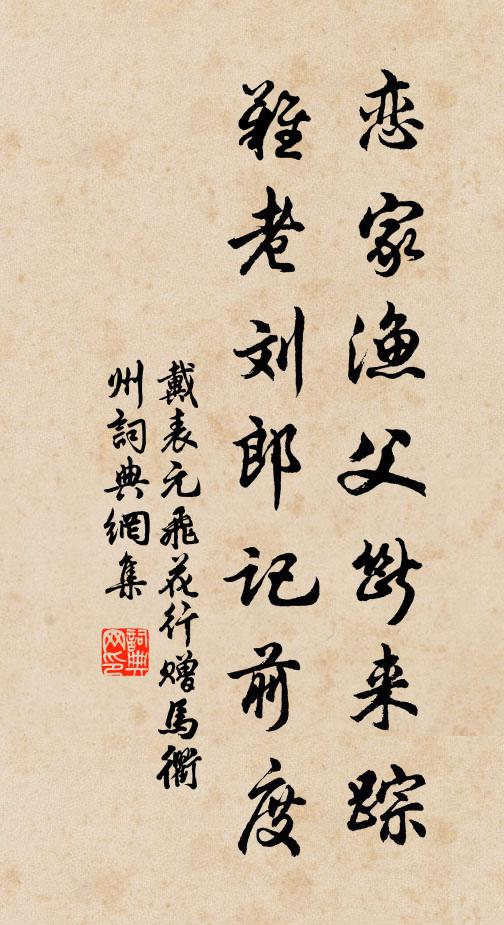 恋家渔父断来踪
难老刘郎记前度
戴表元飞花行赠馬衢
州詞典網集
詞典
网印